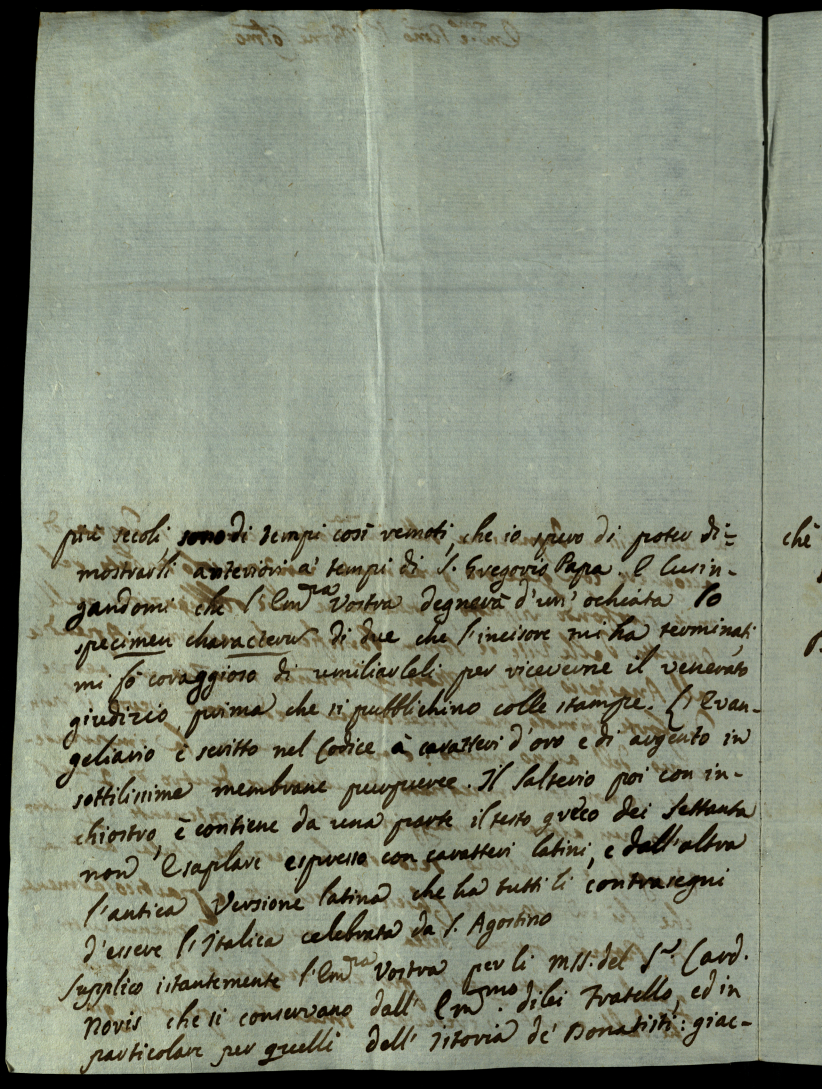 più secoli, sono di tempi così remoti, che io spero di poter di=
mostrarli anteriori a' tempi di S. Gregorio Papa. E lusin-
gandomi che l'Em̄ra Vostra degnerà d'un' ochiata lo
specimen characterum di due che l'incisore mi ha terminati,
mi fò coraggioso di umiliarleli per riceverne il venerato
giudizio prima che si pubblichino colle stampe. L'Evan-
geliario è scritto nel Codice à caratteri d'oro e di argento in
sottilissime membrane purpuree. Il Salterio poi con in-
chiostro, è contiene da una parte il testo greco dei Settanta
non Esaplare espresso con caratteri latini, e dall'altra
l'antica Versione latina che ha tutti li contrasegni
d'essere l'Italica celebrata da S. Agostino
Supplico istantemente l'Em̄ra Vostra per li mss. del Sr. Card.
Noris che si conservano dall' Em̄mo. dilei Fratello, ed in
particolare per quelli dell' Istoria de' Donatisti: giac-
chè